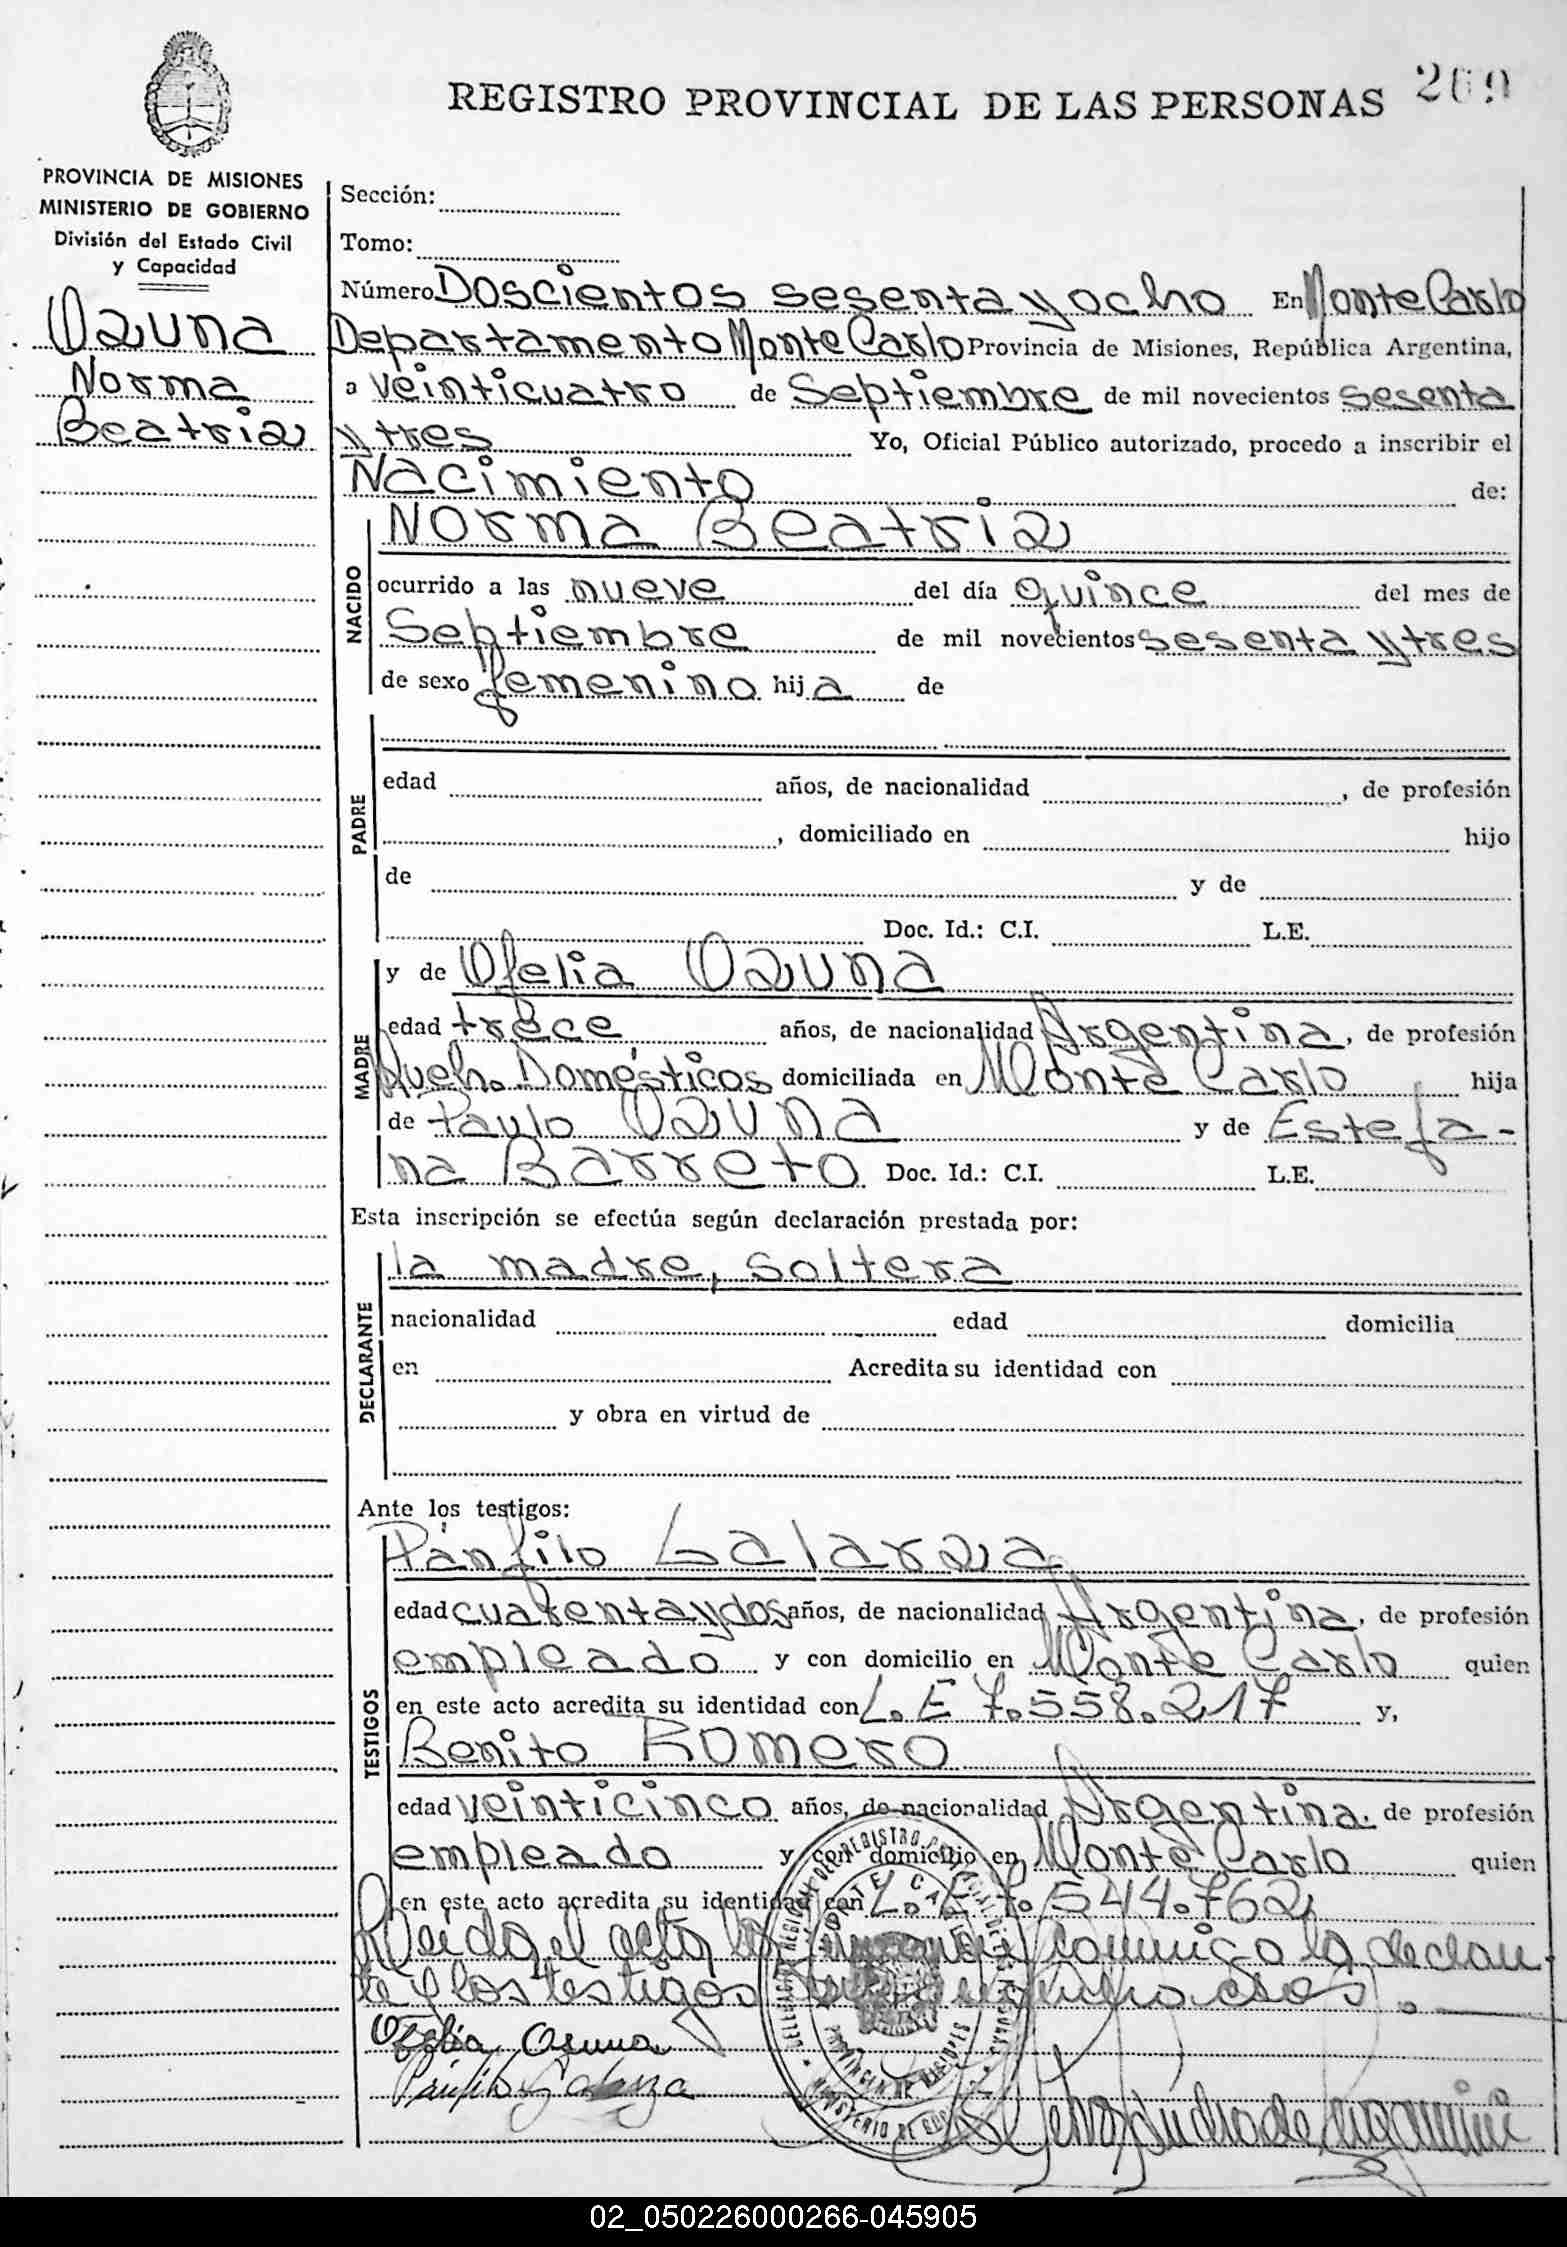 269
REGISTRO PROVINCIAL DE LAS PERSONAS
PROVINCIA DE MISIONES
MINISTERIO DE GOBIERNO
División del Estado Civil
y Capacidad
Ozuna
Norma
Beatriz
Sección:
Tomo:
Número Doscientos sesenta y ocho En Monte Carlo
Departamento Monte Carlo Provincia de Misiones, República Argentina,
a veinticuatro de Septiembre de mil novecientos sesenta
y tres Yo, Oficial Público autorizado, procedo a inscribir el
Nacimiento de:
NACIDO
Norma Beatriz
ocurrido a las nueve del día quince del mes de
Septiembre de mil novecientos sesenta y tres
de sexo femenino hija de
PADRE
edad años, de nacionalidad , de profesión
, domiciliado en hijo
de y de
Doc. Id.: C.I. L.E.
MADRE
y de Ofelia Ozuna
edad trece años, de nacionalidad Argentina, de profesión
Queh. Domésticos domiciliada en Monte Carlo hija
de Paulo Ozuna y de Estefa-
na Barreto Doc. Id.: C.I. L.E.
Esta inscripción se efectúa según declaración prestada por:
DECLARANTE
la madre, soltera
nacionalidad edad domicilia
en Acredita su identidad con
y obra en virtud de
Ante los testigos:
TESTIGOS
Pánfilo Galarza
edad cuarenta y dos años, de nacionalidad Argentina, de profesión
empleado y con domicilio en Monte Carlo quien
en este acto acredita su identidad con L.E 7.558.217 y,
Benito Romero
edad veinticinco años, de nacionalidad Argentina. de profesión
empleado y con domicilio en Monte Carlo quien
en este acto acredita su identidad con L.E 7.544.762
Leida el acta la conmigo la declaran-
te y los testigos
Ofelia Osuna
Pánfilo Galarza
MONTE CARLO
PROVINCIA DE MISIONES
02_050226000266-045905